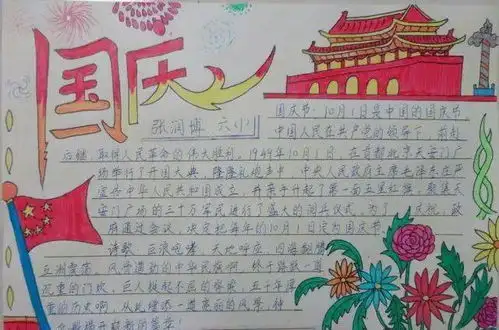 国庆
张润博 六小
国庆节,10月1日是中国的国庆节
中国人民在共产党的领导下,前赴
后继,取得人民革命的伟大胜利。1949年10月1日,在首都北京天安门广
场举行了开国大典,隆隆礼炮声中,中央人民政府主席毛泽东庄严
宣告中华人民共和国成立,并亲手升起了第一面五星红旗。聚集天
安门广场的三十万军民进行了盛大的阅兵仪式。为了庆祝,政
府通过会议,决定把每年的10月1日定为国庆节
诗歌 巨浪咆哮 天地呼应 四海翻腾
五洲震荡,风云涌动的中华民族啊 终于踏破一道
沉重的门坎,巨人挺起不屈的脊梁,五千年漫
的历史啊,从此增添一道亮丽的风景,神